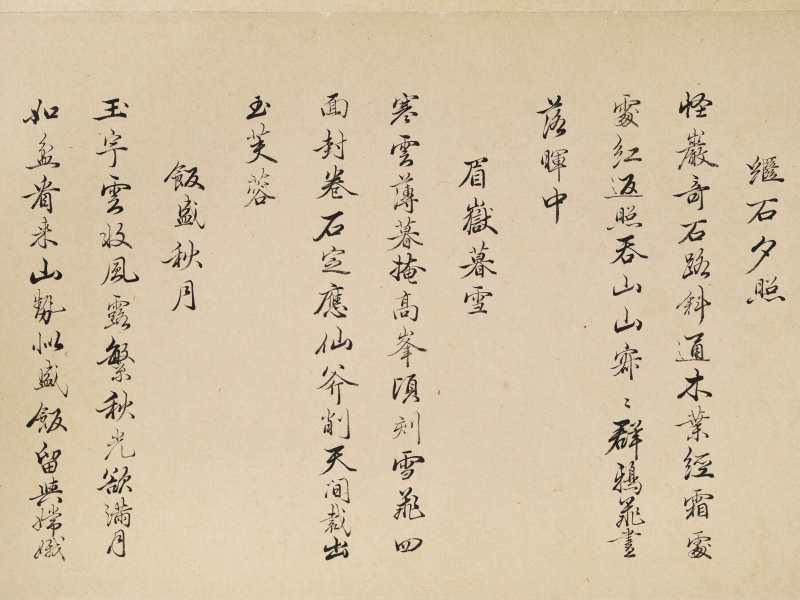 繼石夕照
怪巖奇石路斜通木葉經霜處
處紅返照吞山山寂〻群鴉飛盡
落暉中
眉嶽暮雪
寒雲薄暮掩高峯頃刻雪飛四
面封卷石定應仙斧削天間裁出
玉芙蓉
飯盛秋月
玉宇雲收風露繁秋光欲滿月
如盆看来山勢似盛飯留與嫦娥